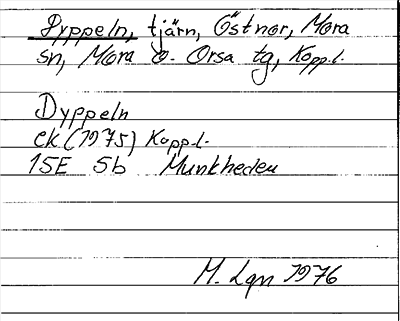 Dyppeln, tjärn, Östnor, Mora
sn, Mora o. Orsa tg, Kopp.l.
Dyppeln
ek (1975) Kopp.l.
15E 5b Munkheden
M. Lqn 1976